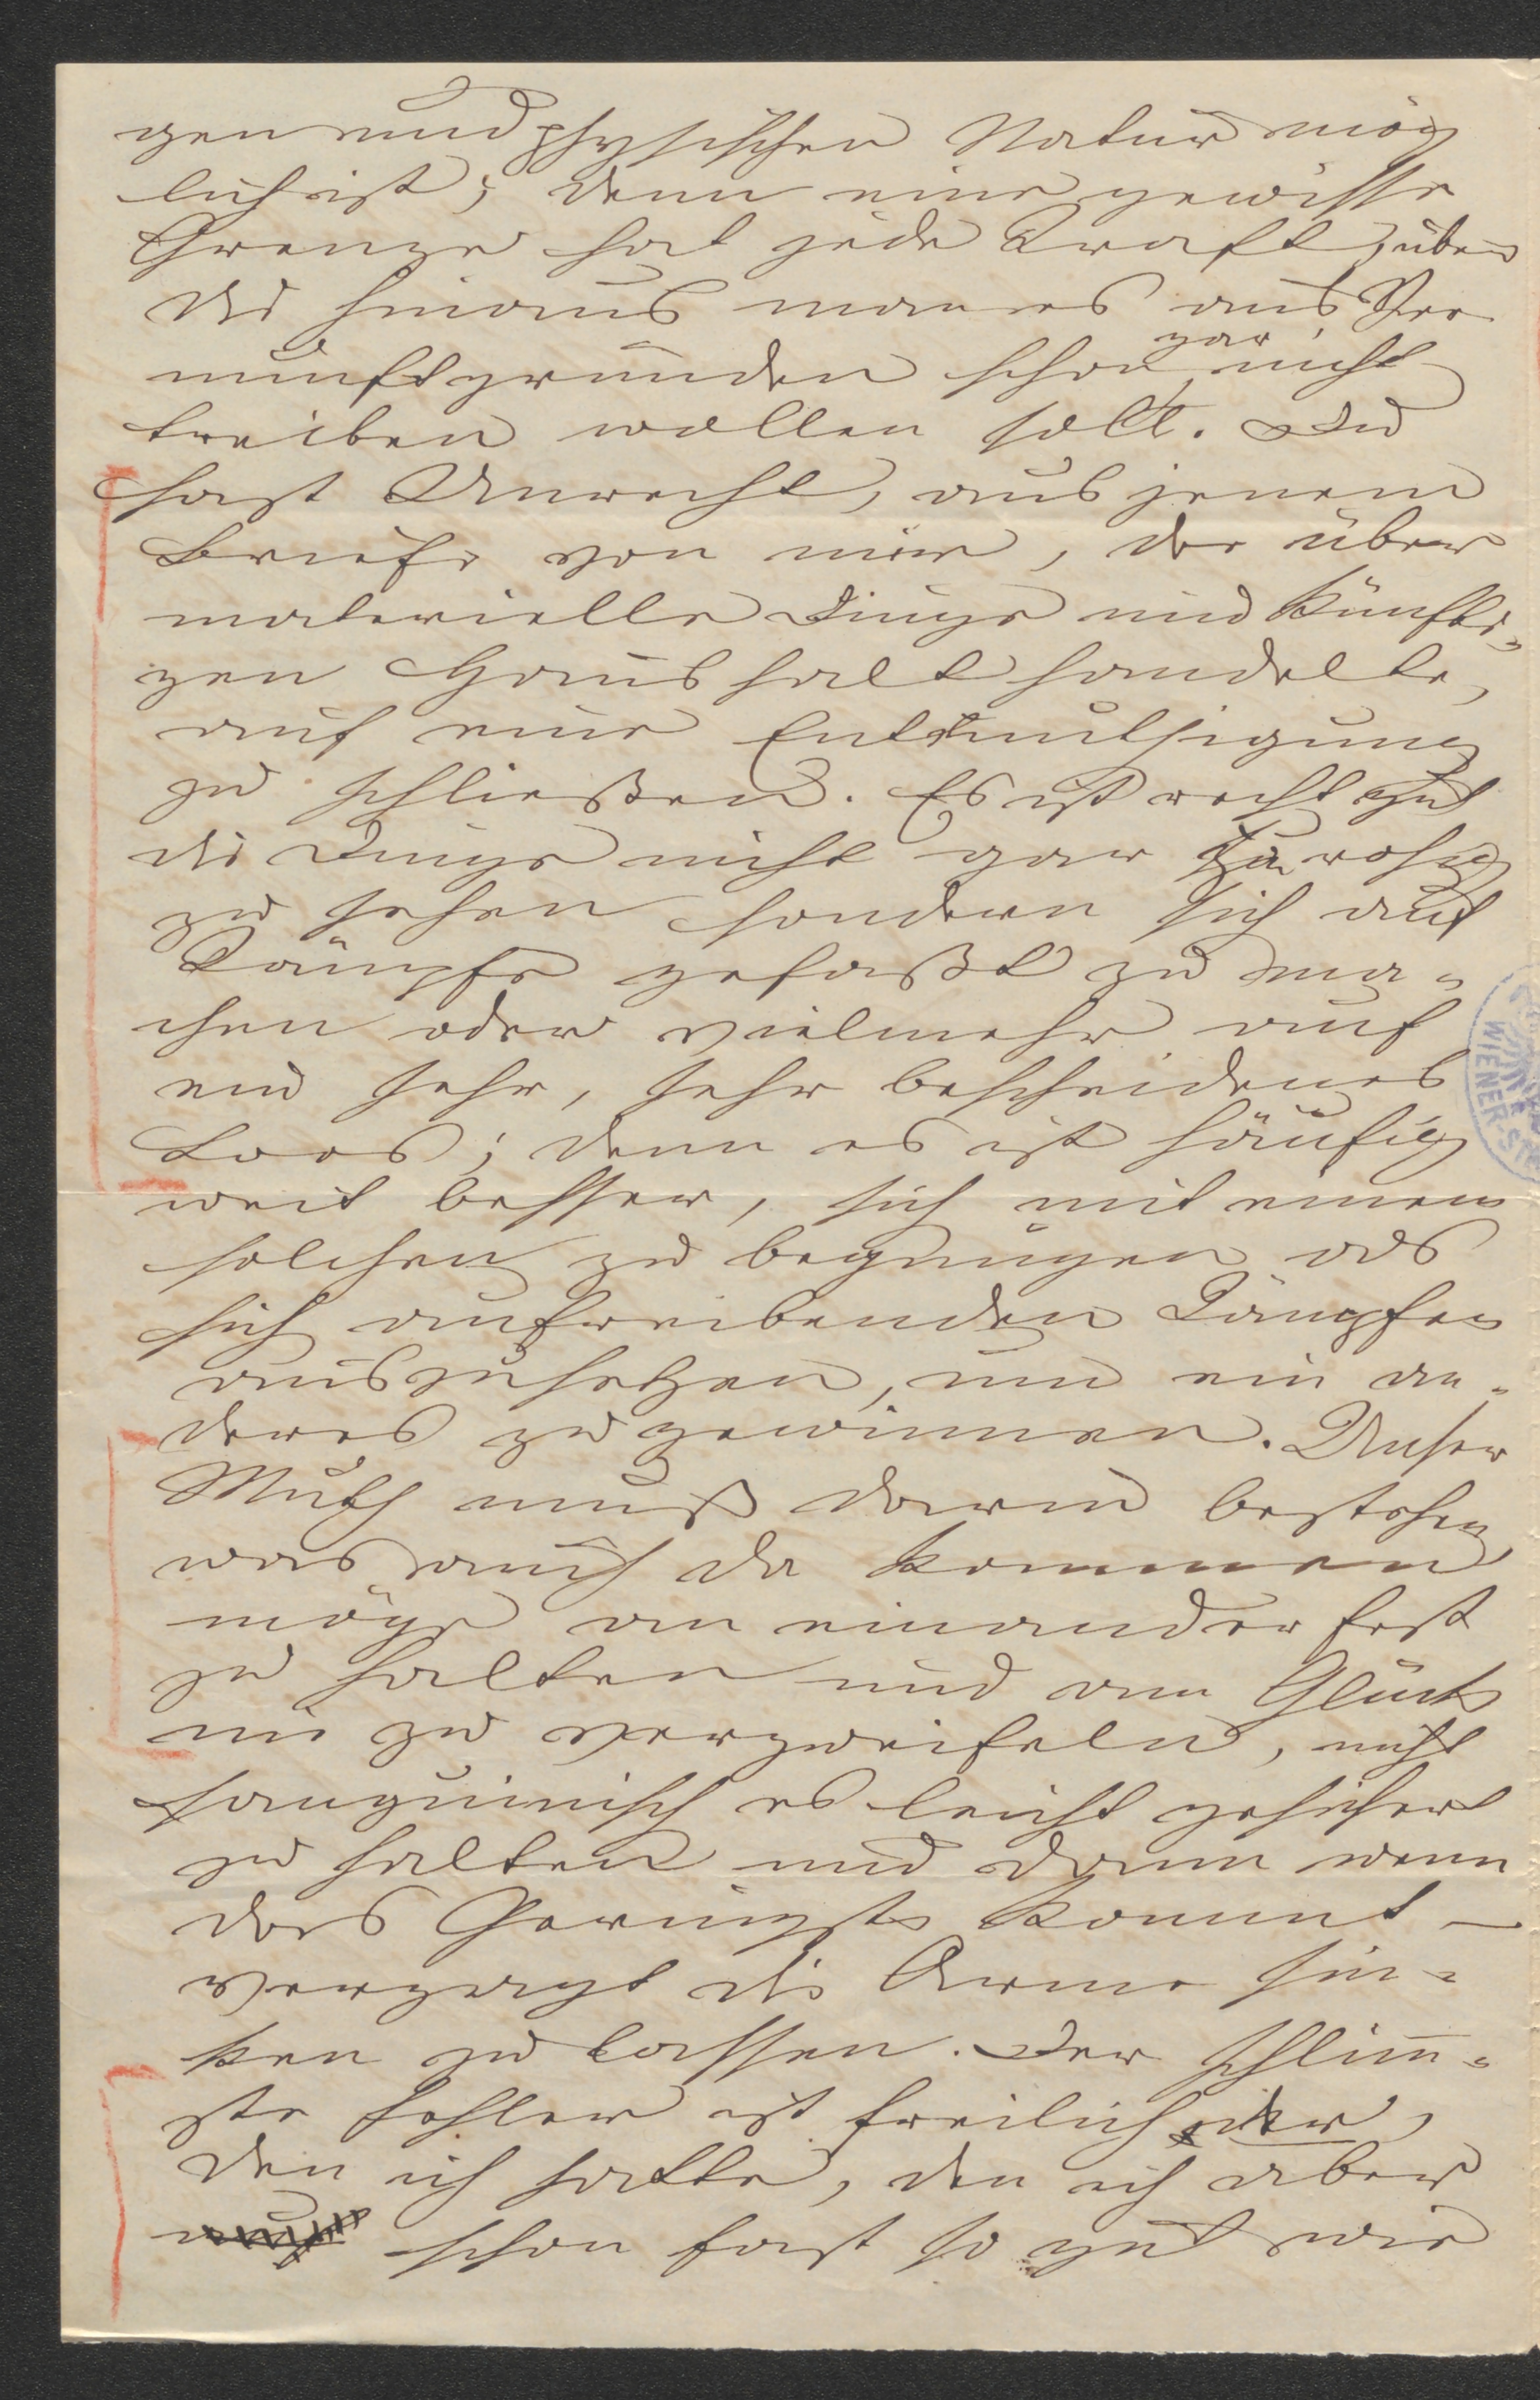 gen und physischen Natur mög
lich ist; denn eine gewisse
Grenze hat jede Kraft, über
die hinaus man es aus Ver
nunftgründen schon gar nicht
treiben wollen sollt. Du
hast Unrecht, aus jenem
Briefe von mir, der über
materielle Dinge und künfti-
gen Haushalt handelte,
auf eine Entmuthigung
zu schließen. Es ist recht gut
die Dinge nicht gar zu rosig
zu sehen sondern sich auf
Kämpfe gefaßt zu ma-
chen oder vielmehr auf
ein sehr, sehr bescheidenes
Loos; denn es ist häufig
weit besser, sich mit einem
solchen zu begnügen als
sich aufreibenden Kämpfen
auszusetzen, um ein an-
deres zu gewinnen. Unser
Muth muß darin bestehen
was auch da kommen
möge an einander fest
zu halten und am Glück
nie zu verzweifeln, nicht
sanguinisch es leicht gesichert
zu halten und dann wenn
das Geringste kommt –
verzagt die Arme sin-
ken zu lassen. Der schlim-
ste Fehler ist freilich der,
den ich hatte, den ich aber
schon fast so gut wie
WIENER-ST